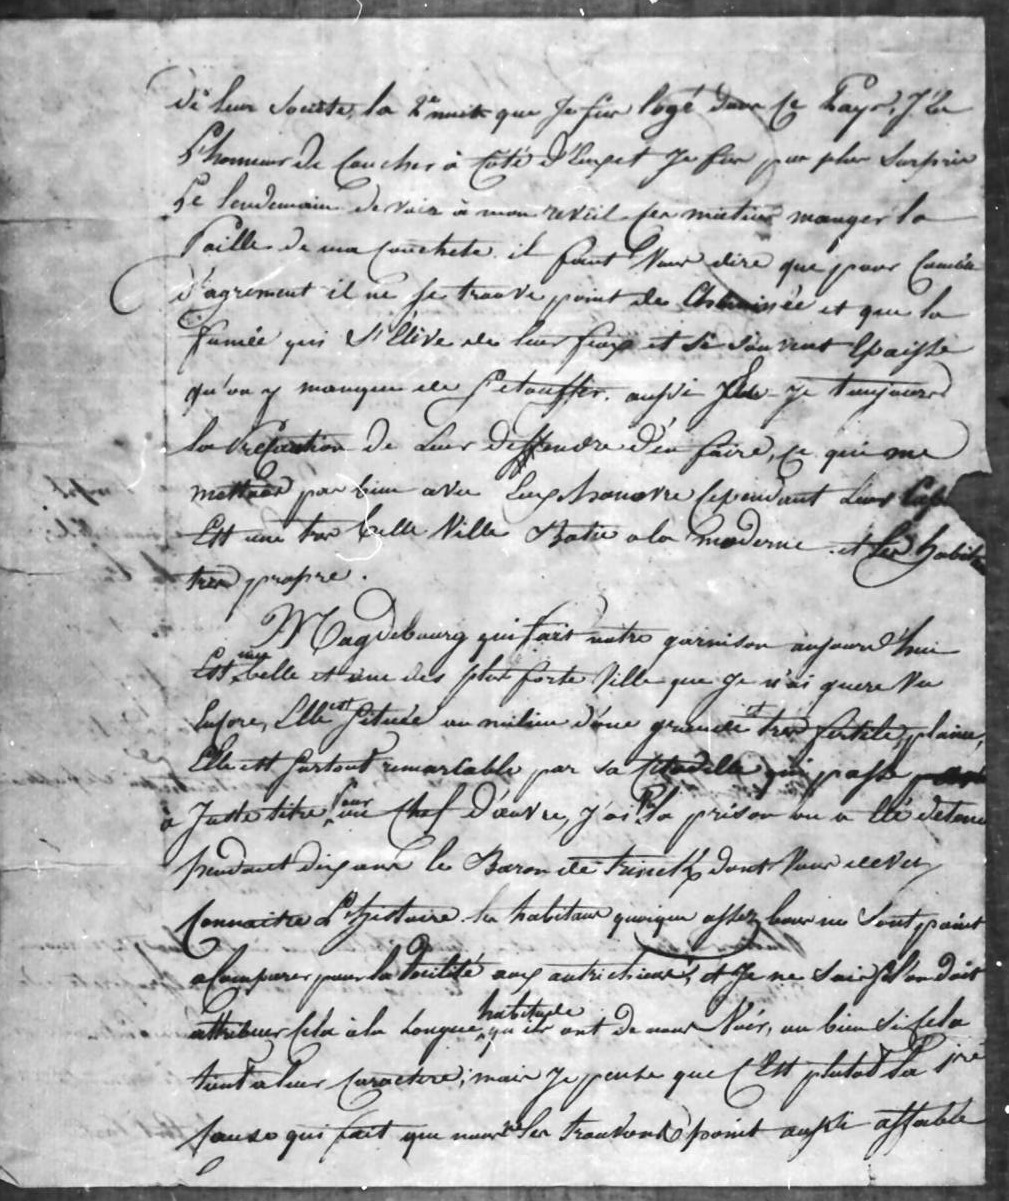 de leur societé, la 2e nuit que Je fus logé dans ce Pays, J'Eu
L'honneur de Coucher à Coté d'Eux et Je fus pas plus Surpris
Le lendemain de voir à mon reveil ces mutins manger la
Paille de ma couchete. il faut Vous dire que pour Comble
d'agrement il ne se trouve point de Cheminée et que la
fumée qui S'Elève de leur feux est si souvent Epaisse
qu'on y manque de s'etouffer. aussi Je toujours
la Précaution de Leur deffendre d'en faire, ce qui me
mettais pas bien avec Eux. hanovre Cependant Leur Cap
Est une tres belle Ville Batie a la moderne et Les habit
tres propre.
Magdebourg qui fait notre garnison aujourd'hui
Est une belle et une des plus forte Ville que Je n'ai guere Vu
Encore, Elle est située au milieu d'une grande et tres fertile plaine,
Elle est surtout remarcable par sa Citadelle qui passe
à Juste titre pour un Chef d'œuvre, J'ai vu la prison ou a Eté detenu
pendant dix ans le Baron de trinck dont Vous devez
Connaitre L'histoire. les habitans quoique assez bons ne sont point
a Comparer pour la Docilité aux autrichiens, et Je ne sais si l'on doit
attribuer Cela à la Longue habitude qu'ils ont de nous Voir, ou bien si cela
tient a leur Caractere; mais Je pense que C'Est plutot La 1re
cause qui fait que nous ne les trouvons point aussi affable